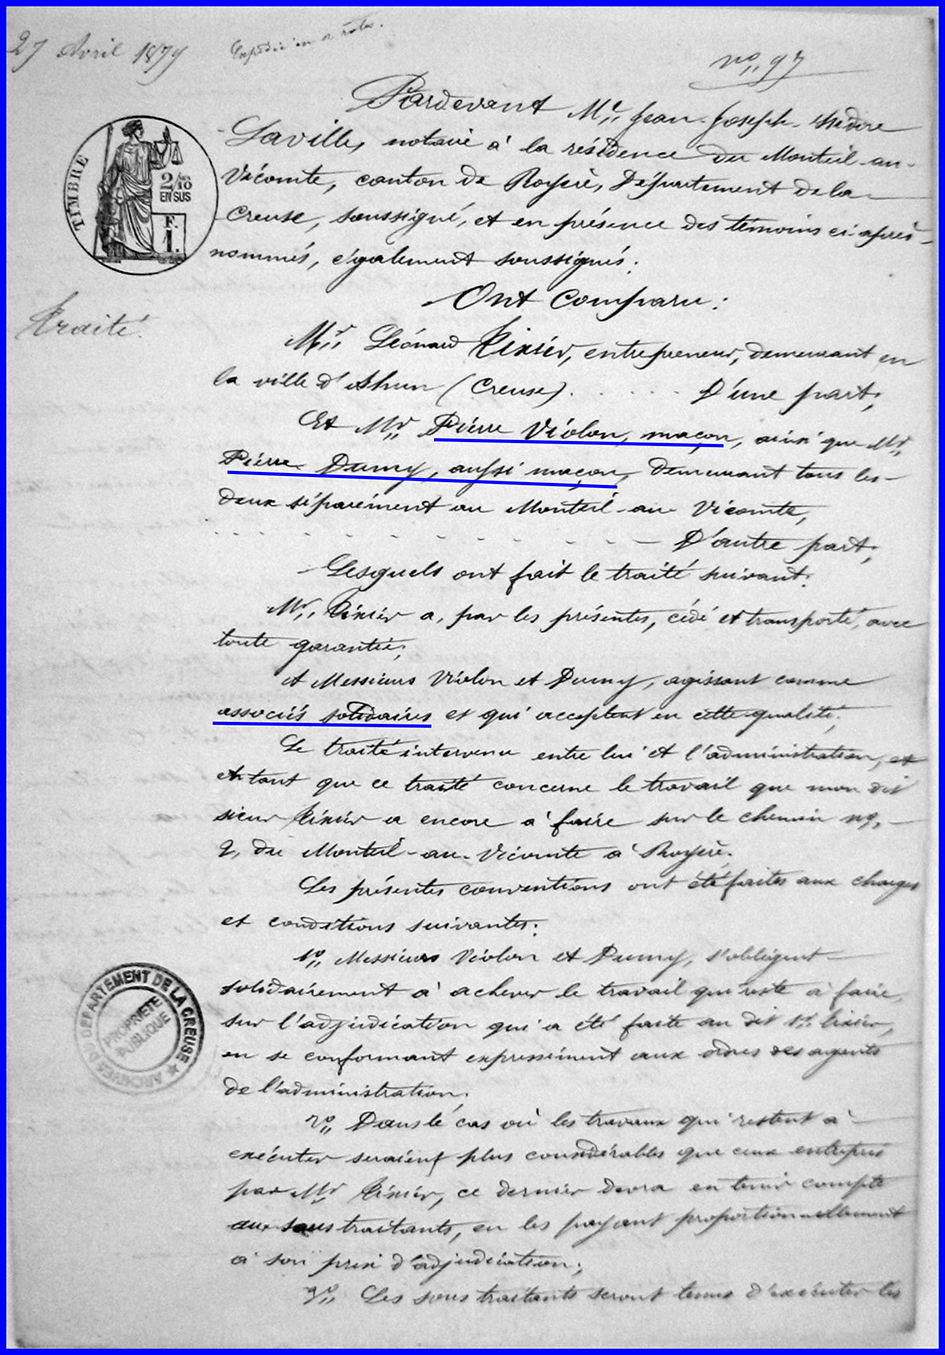 27 Avril 1879
no,, 97
Pardevant Me,, Jean-Joseph-Isidore
Laville, notaire à la résidence du Monteil-au-
Vicomte, canton de Royère, Département de la
Creuse, soussigné, et en présence des témoins ci-après
nommés, également soussignés.
TIMBRE
2/10
EN SUS
F.
1.
Ont Comparu:
traité.
Mr,, Léonard Tixier, entrepreneur, demeurant en
la ville d'Ahun (Creuse). D'une part;
Et Mr,, Pierre Violon, maçon, ainsi que Mr,,
Pierre Dumy, aussi maçon, demeurant tous les
deux séparément au Monteil-au-Vicomte,
D'autre part;
Lesquels ont fait le traité suivant:
Mr,, Tixier a, par les présentes, cédé et transporté, avec
toute garantie;
A Messieurs Violon et Dumy, agissant comme
associés solidaires et qui acceptent en cette qualité;
Le traité intervenu entre lui et l'administration, et
en tant que ce traité concerne le travail que mon dit
sieur Tixier a encore à faire sur le chemin no,,
2, du Monteil-au-Vicomte à Royère.
Les présentes conventions ont été faites aux charges
et conditions suivantes:
1o,, Messieurs Violon et Dumy, s'obligent
solidairement à achever le travail qui reste à faire,
sur l'adjudication qui a été faite au dit Sr,, Tixier,
en se conformant expressément aux ordres des agents
de l'administration;
ARCHIVES DU DÉPARTEMENT DE LA CREUSE
PROPRIÉTÉ
PUBLIQUE
2o,, Dans le cas où les travaux qui restent à
exécuter seraient plus considérables que ceux entrepris
par Mr Tixier, ce dernier devra en tenir compte
aux sous traitants, en les payant proportionnellement
à son prix d'adjudication;
3o,, Les sous traitants seront tenus d'exécuter les